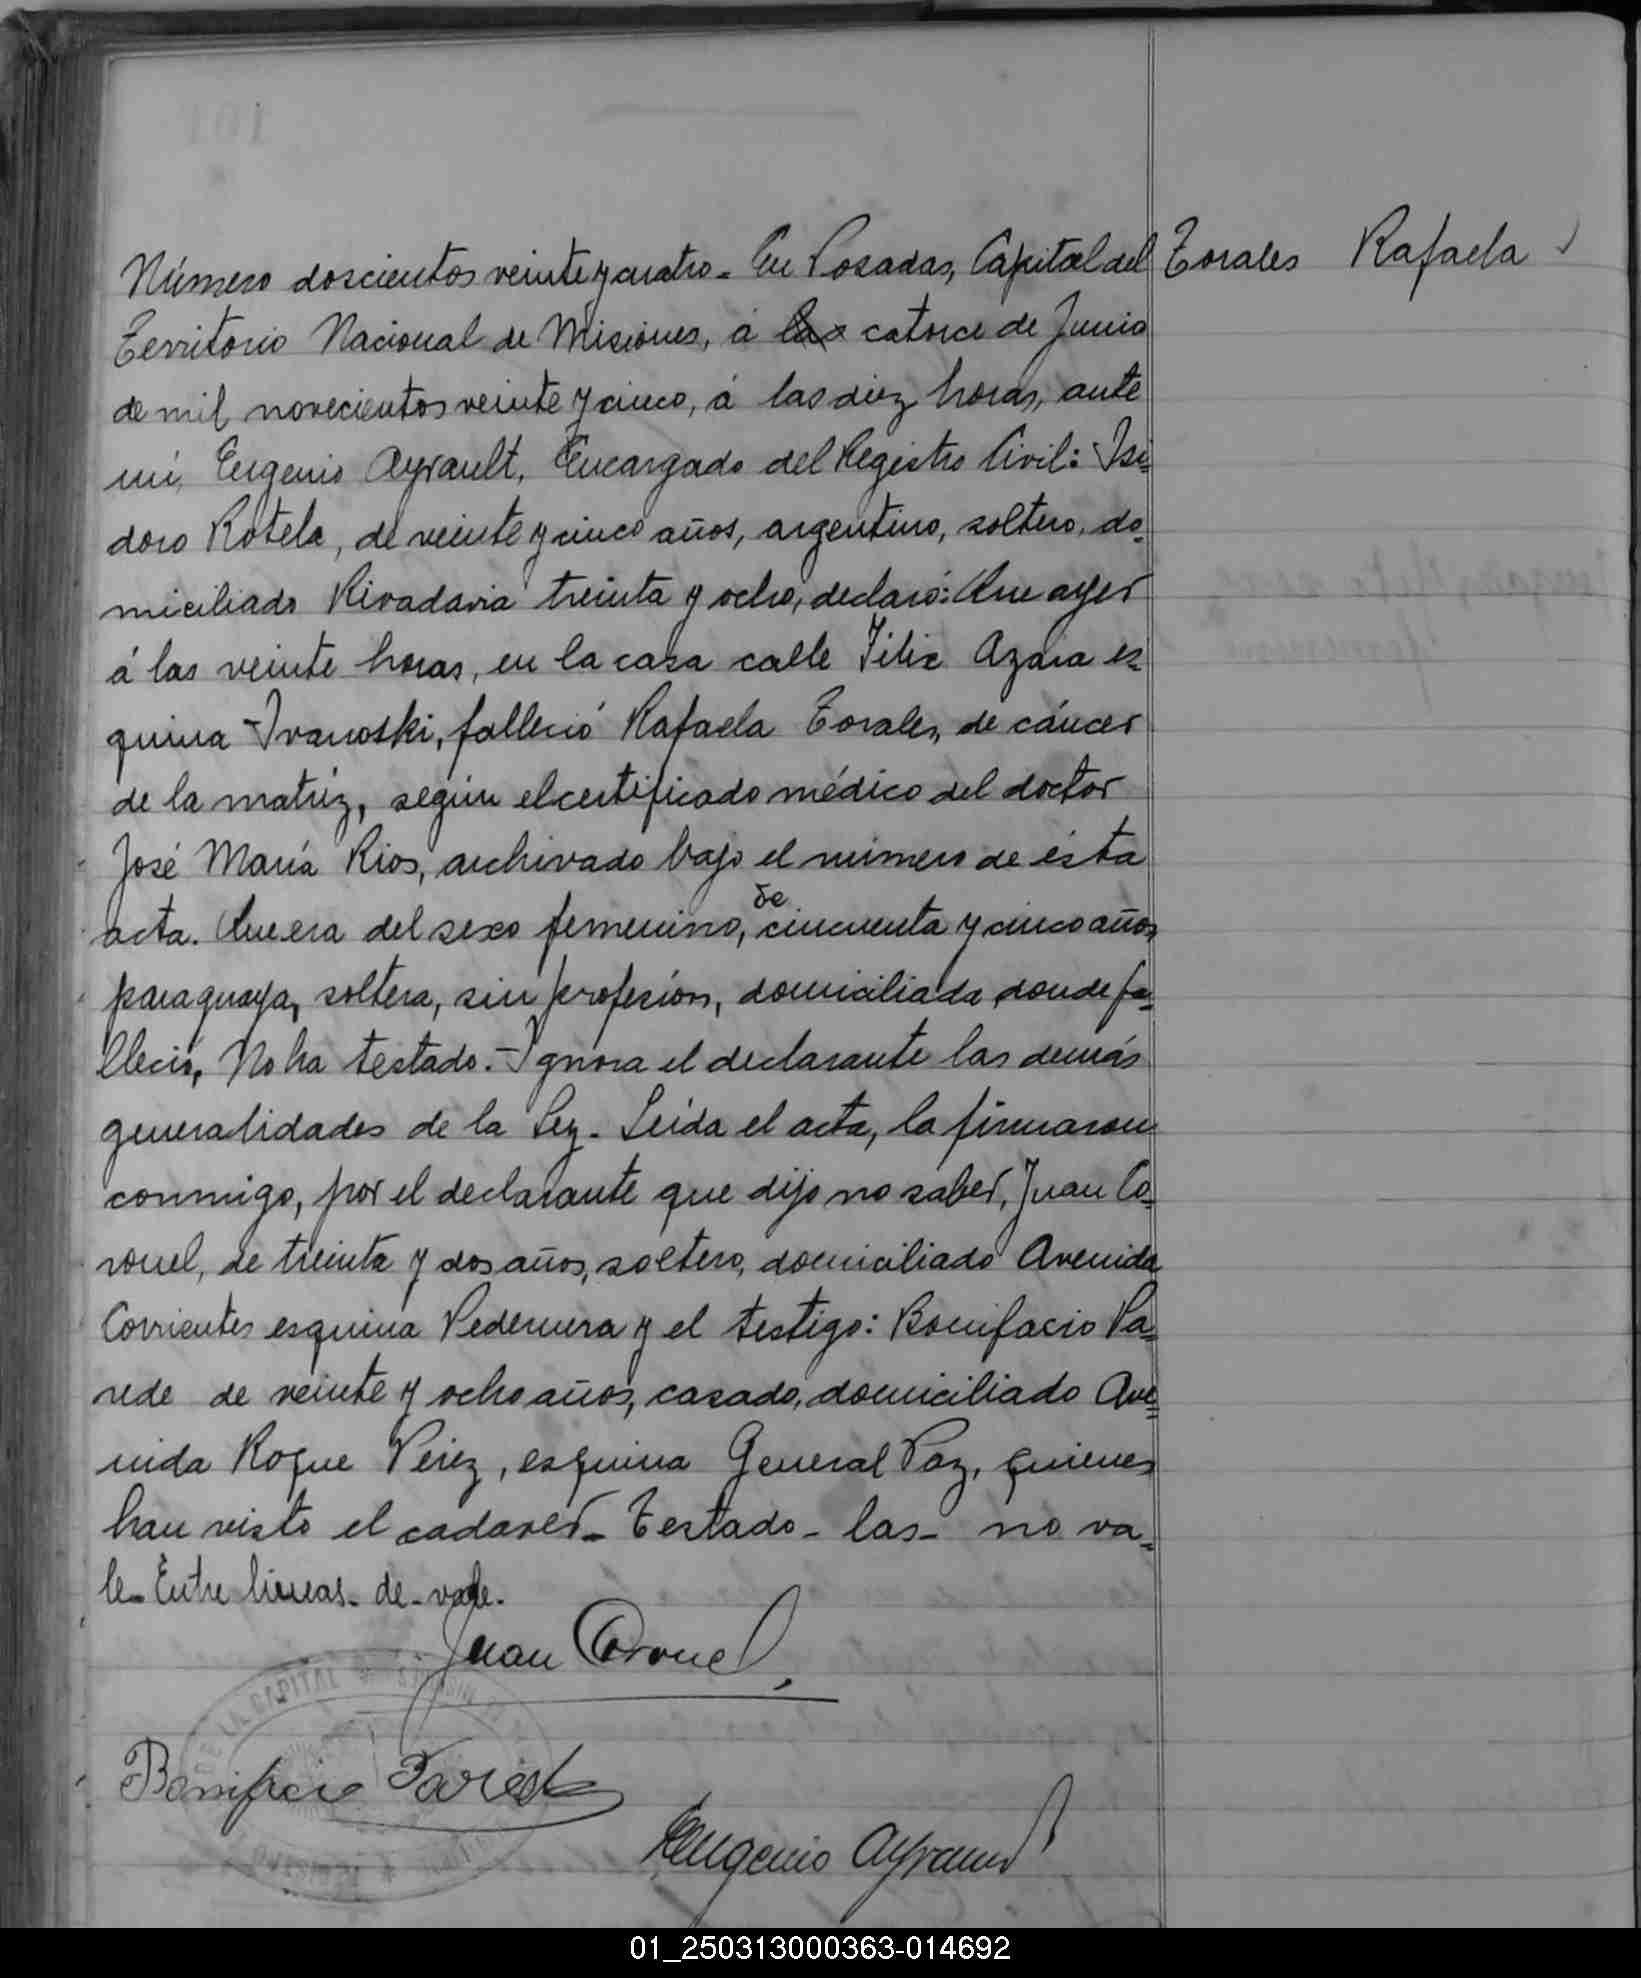 Torales Rafaela
Número doscientos veinte y cuatro. En Posadas, Capital del
Territorio Nacional de Misiones, á las catorce de Junio
de mil novecientos veinte y cinco, á las diez horas, ante
mi, Eugenio Ayrault, Encargado del Registro Civil: Isi-
doro Rotela, de veinte y cinco años, argentino, soltero, do-
miciliado Rivadavia treinta y ocho, declaró: Que ayer
á las veinte horas, en la casa calle Félix Azara es-
quina Ivanoski, falleció Rafaela Torales, de cáncer
de la matríz, según el certificado médico del doctor
José María Rios, archivado bajo el número de ésta
acta. Que era del sexo femenino, de cincuenta y cinco años,
paraguaya, soltera, sin profesión, domiciliada donde fa-
lleció, No ha testado. Ignora el declarante las demás
generalidades de la Ley. Leída el acta, la firmaron
conmigo, por el declarante que dijo no saber, Juan Co-
ronel, de treinta y dos años, soltero, domiciliado Avenida
Corrientes esquina Pedernera y el testigo: Bonifacio Pa-
rede de veinte y ocho años, casado, domiciliado Ave-
nida Roque Pérez, esquina General Paz, quienes
han visto el cadaver. Testado - las - no va-
le. Entre lineas - de - vale.
Juan Coronel
Bonifacio Parede
Eugenio Ayrault
DE LA CAPITAL
REGISTRO
01_250313000363-014692